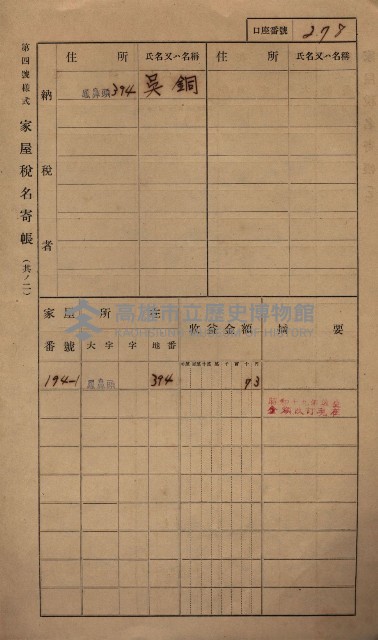 口座番號 278
第四號樣式 家屋稅名寄帳 (共ノ二)
納稅者
住所 氏名又ハ名稱 住所 氏名又ハ名稱
鳳鼻頭394 吳銅
家屋所在 收益金額 摘要
番號 大字 字 地番
194-1 鳳鼻頭 394 93
高雄市立歷史博物館
KAOHSIUNG MUSEUM OF HISTORY